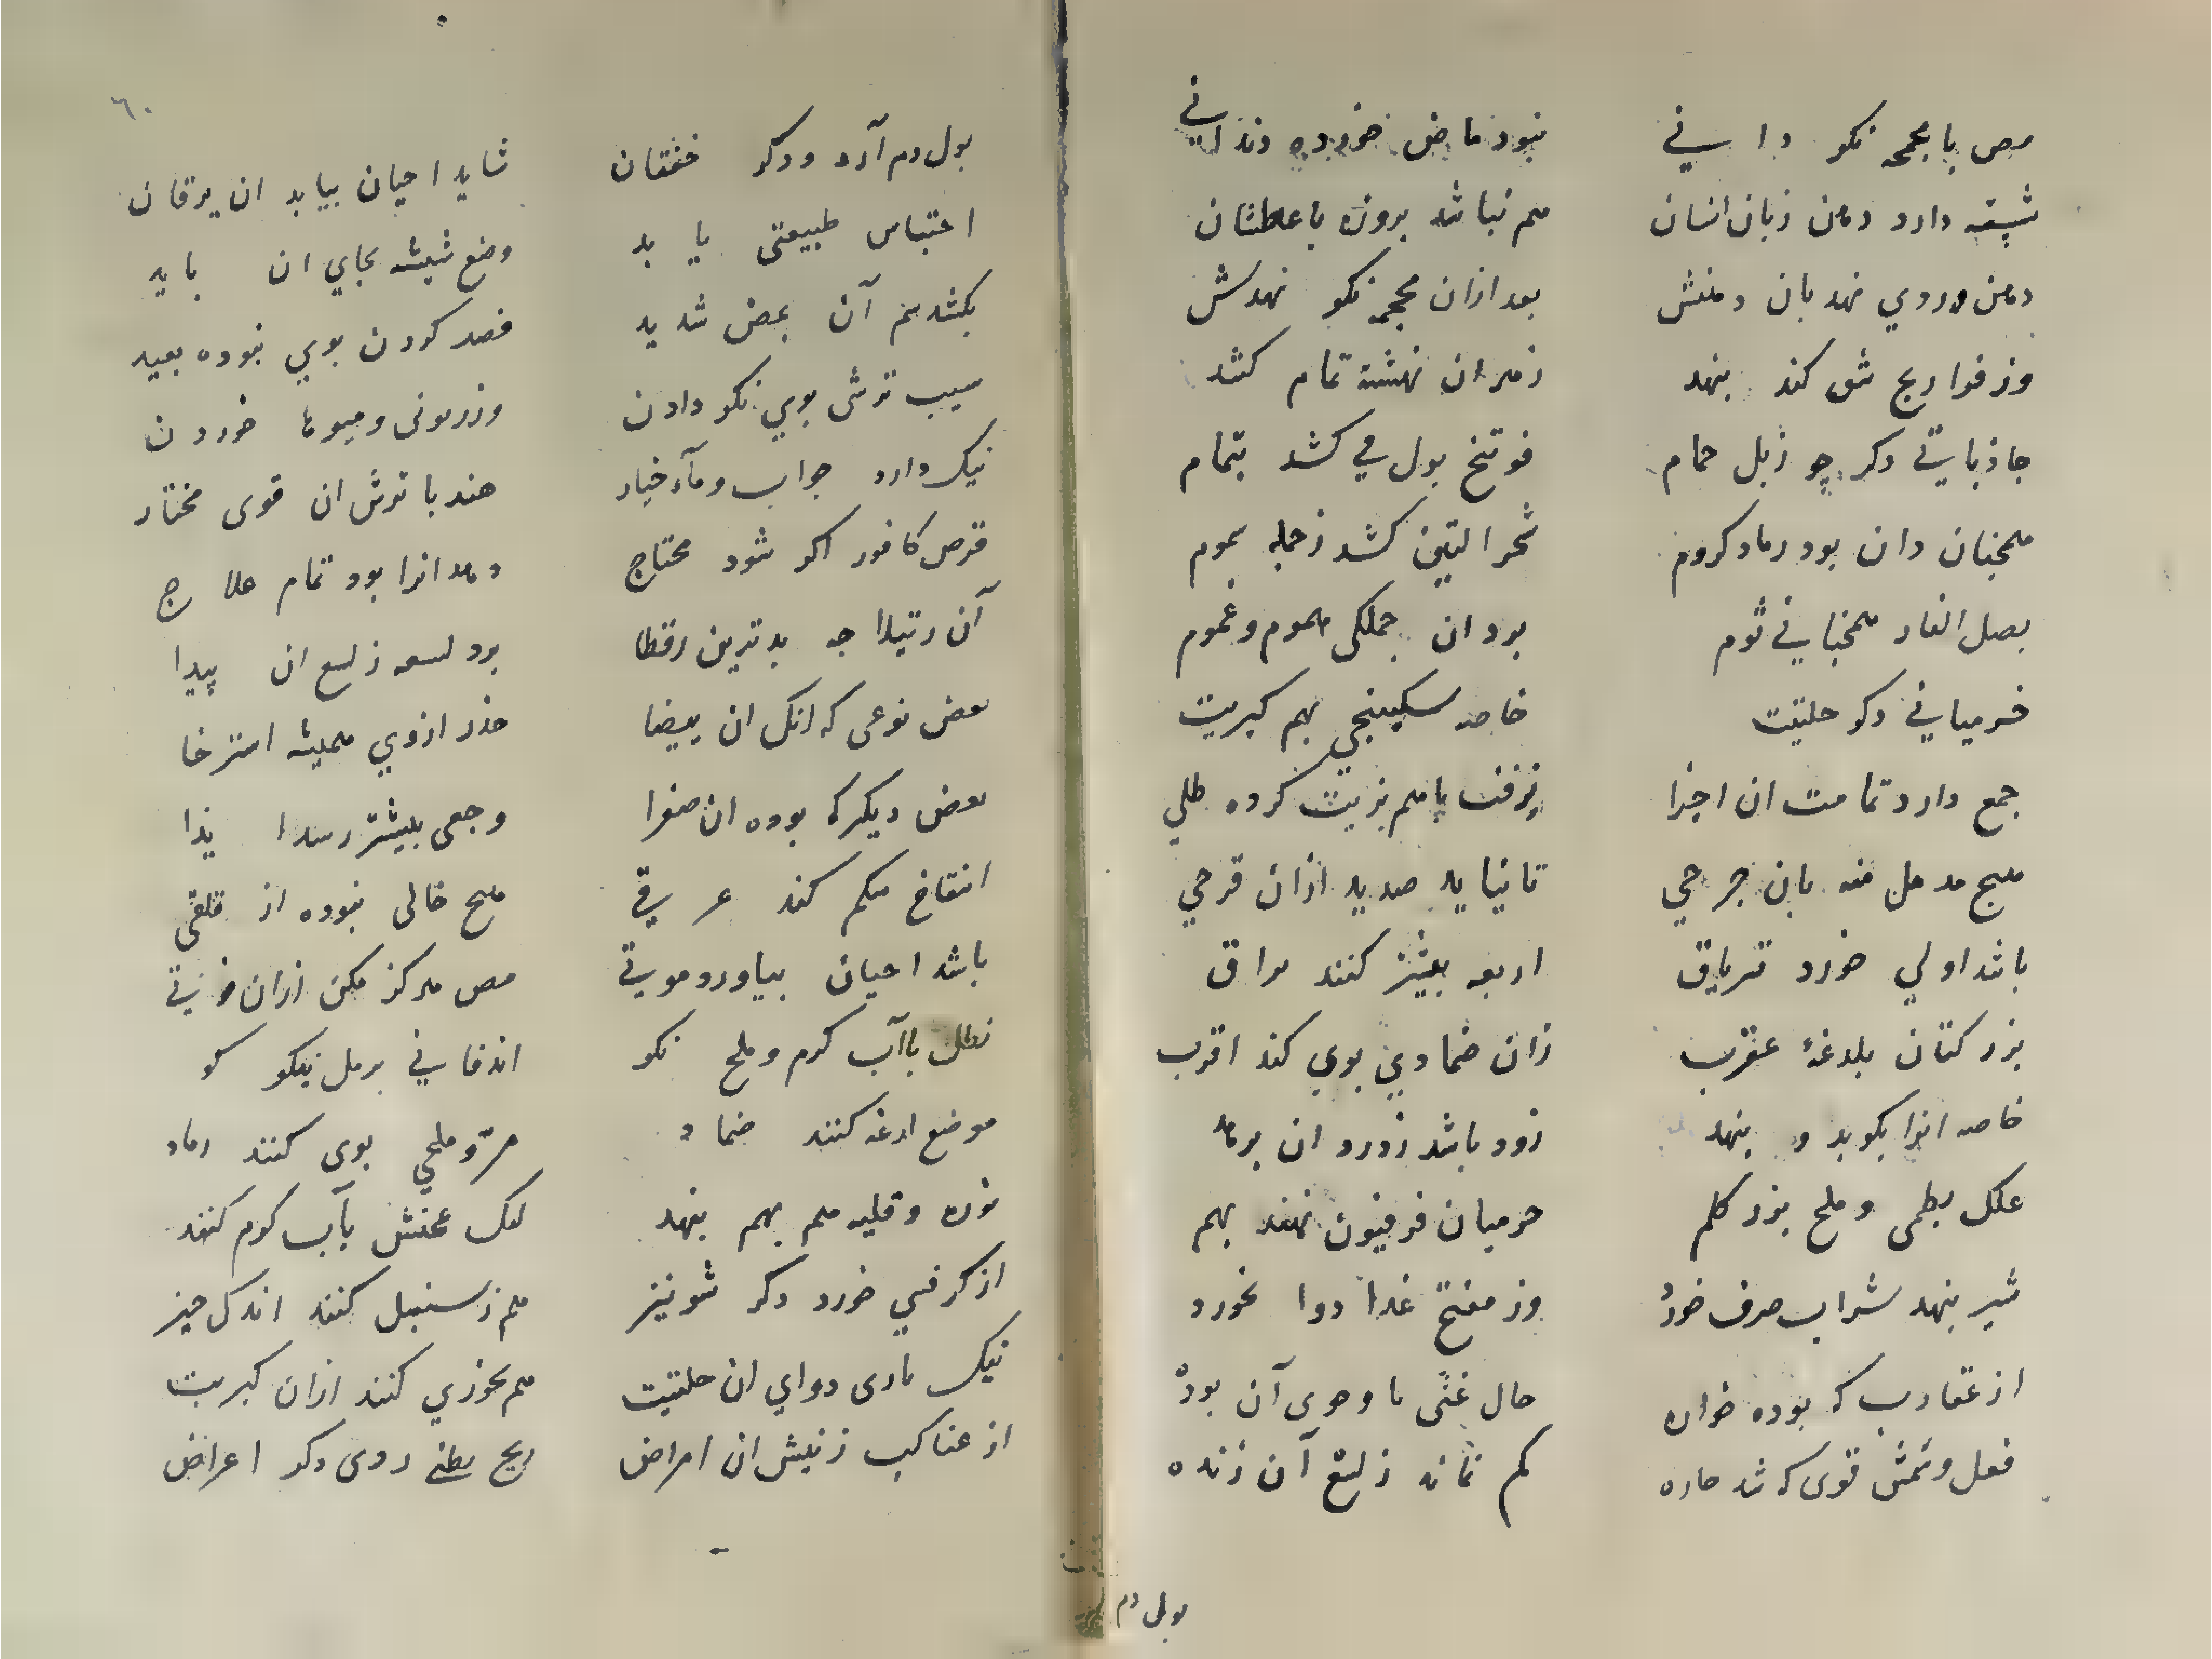 مص با محجمه نكو دانے نبود ماض خورده دندانے
شسته دارد دهن زبان انسان هم نباشد بروزه با عطشان
دهن وردي نهد بان دهنش بعد ازان محجمه نكو نهدش
وز فواريج شق كند بنهد زهر ان نهشته تمام كشد
جاذباتے دكر چو زبل حمام فوتنج بول مے كشد بتمام
همچنان دان بود رماد كروم شجر التين كشد ز جمله سموم
بصل الفار همچنانے ثوم بود ان جملكى هموم و غموم
خرميانے دكر حلتيت خاصه سكبينجي بهم كبريت
جمع دارد تمامت ان اجزا بزفت با هم بزيت كرده طلي
هيچ مدمل منه بان جرحي تا نيايد صديد ازان قرحي
باشد اولي خورد ترياق اربعه بيشتر كنند مراق
بزر كتان بلدغهٔ عقرب زان ضمادي بوي كند اقرب
خاصه انرا بكوبد و بنهد زود باشد ز درد ان برهد
علك بطمى و ملح بزر كلم حرميان فرفيون نهند بهم
شير بنهد شراب صرف خورد وز مفتح غذا دوا بخورد
از عقارب كه بوده خواره حال غشى ما وحوى آن بوده
فعل و سمش قوى كه شد حاره كم نماند ز لسع آن زنده
بول دم
٦٠
بول دم آرد و دكر خفقان شايد احيان بيابد ان يرقان
احتباس طبيعتى يابد وضع شيشه بجاي ان بايد
بكشد سم آن بمص شديد فصد كردن بوي نبوده بعيد
سيب ترشى بوي نكو دادن وز رمونى و ميوها خوردن
نيك دارد جواب و مآء خيار هندبا ترش ان قوى مختار
قرص كافور اكر شود محتاج دهد انرا بود تمام علاج
آن رتيلا چه بدترين رقطا بود لسعه ز لسع ان پيدا
بعض نوعى كه انك ان بيضا خدر از وي هميشه استرخا
بعض ديكر كه بوده ان صفرا وجعى بيشتر رسد ايذا
انتفاخ شكم كند عرقے هيچ خالى نبوده از قلقى
باشد احيان بياورد موتے مص هركز مكن ازان فوتے
نطل با آب كرم و ملح نكو اندفانے برمل نيكو كو
موضع لدغه كنند ضماد مر و ملحي بوى كنند رماد
نوره و قليه هم بهم بنهد لك عجنش بآب كرم كنند
از كرفسي خورد دكر شونيز هم ز سنبل كنند اندك چيز
نيك دارى دواي ان حلتيت هم بخوري كنند ازان كبريت
از عناكب ز نيش ان امراض ريح بطنے ردى دكر اعراض